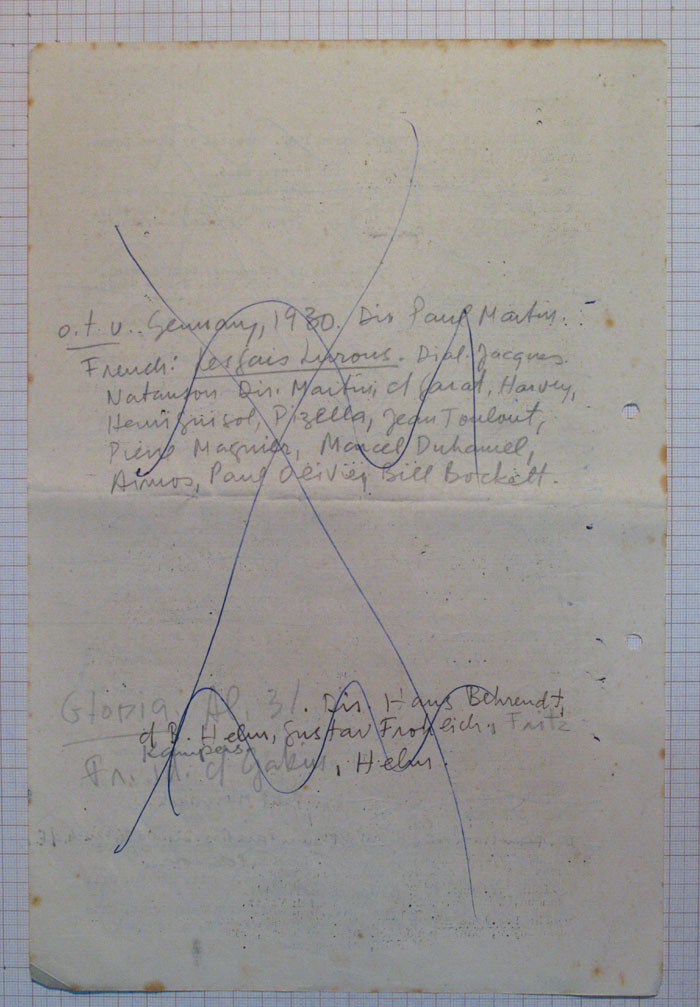 o.t.v.. Germany, 1930. Dir Paul Martin.
French: Les Gais Lurons. Dial. Jacques
Natanson Dir. Martin, d Garat, Harvey,
Henri Guisol, Pizella, Jean Toulout,
Pierre Magnier, Marcel Duhamel,
Aimos, Paul Olivier, Bill Bockett.
Gloria. Al, 31. Dir. Hans Behrendt,
d B. Helm, Gustav Frohlich, Fritz
Kampers.
Fr. Id. d Gabin, Helm.